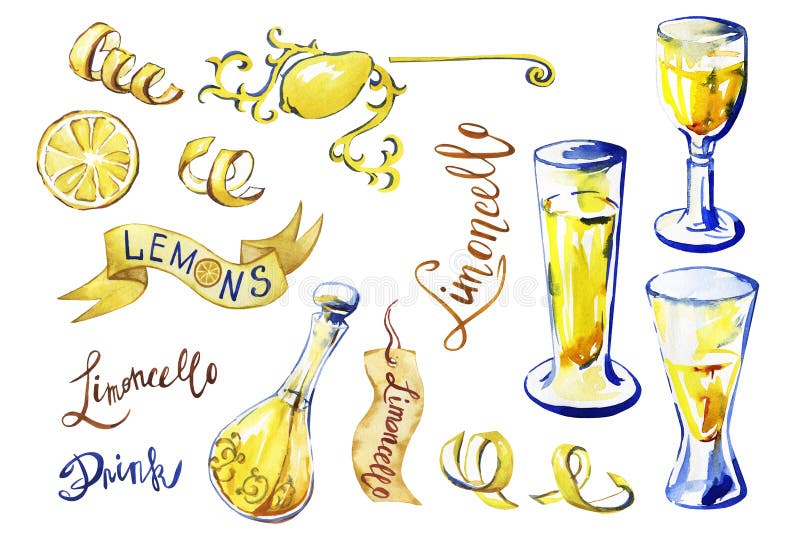 Limoncello
LEMONS
Limoncello
Limoncello
Drink